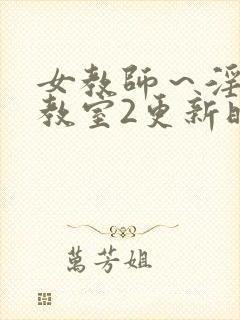 女教師～淫
教室2更新時
萬芳姐